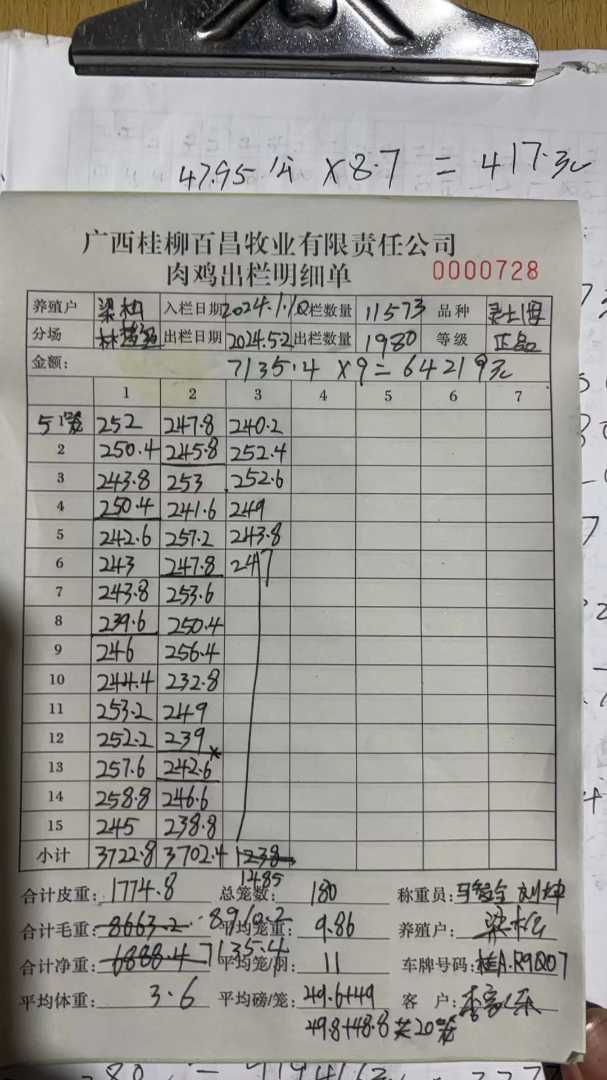 47.95斤 ×8.7 = 417.3元
广西桂柳百昌牧业有限责任公司
肉鸡出栏明细单 0000728
养殖户 入栏日期 2024.1.10 栏数量 11573 品种
分场 出栏日期 2024.5.2 出栏数量 1980 等级 正品
金额: 7135.4 ×9=64219元
1 2 3 4 5 6 7
5笼 252 247.8 240.2
2 250.4 245.8 252.4
3 243.8 253 252.6
4 250.4 241.6 249
5 242.6 257.2 243.8
6 243 247.8 247
7 243.8 253.6
8 239.6 250.4
9 246 256.4
10 244.4 232.8
11 253.2 249
12 252.2 239
13 257.6 242.6
14 258.8 246.6
15 245 238.8
小计 3722.8 3702.4 1238
1485
合计皮重: 1774.8 总笼数: 180 称重员:
合计毛重: 8663.2 8910.2 平均笼重: 9.86 养殖户:
合计净重: 6888.4 7135.4 平均笼/羽: 11 车牌号码: 桂A.R9Q07
平均体重: 3.6 平均磅/笼: 49.6+49 客户:
49.8+48.8 共20笼